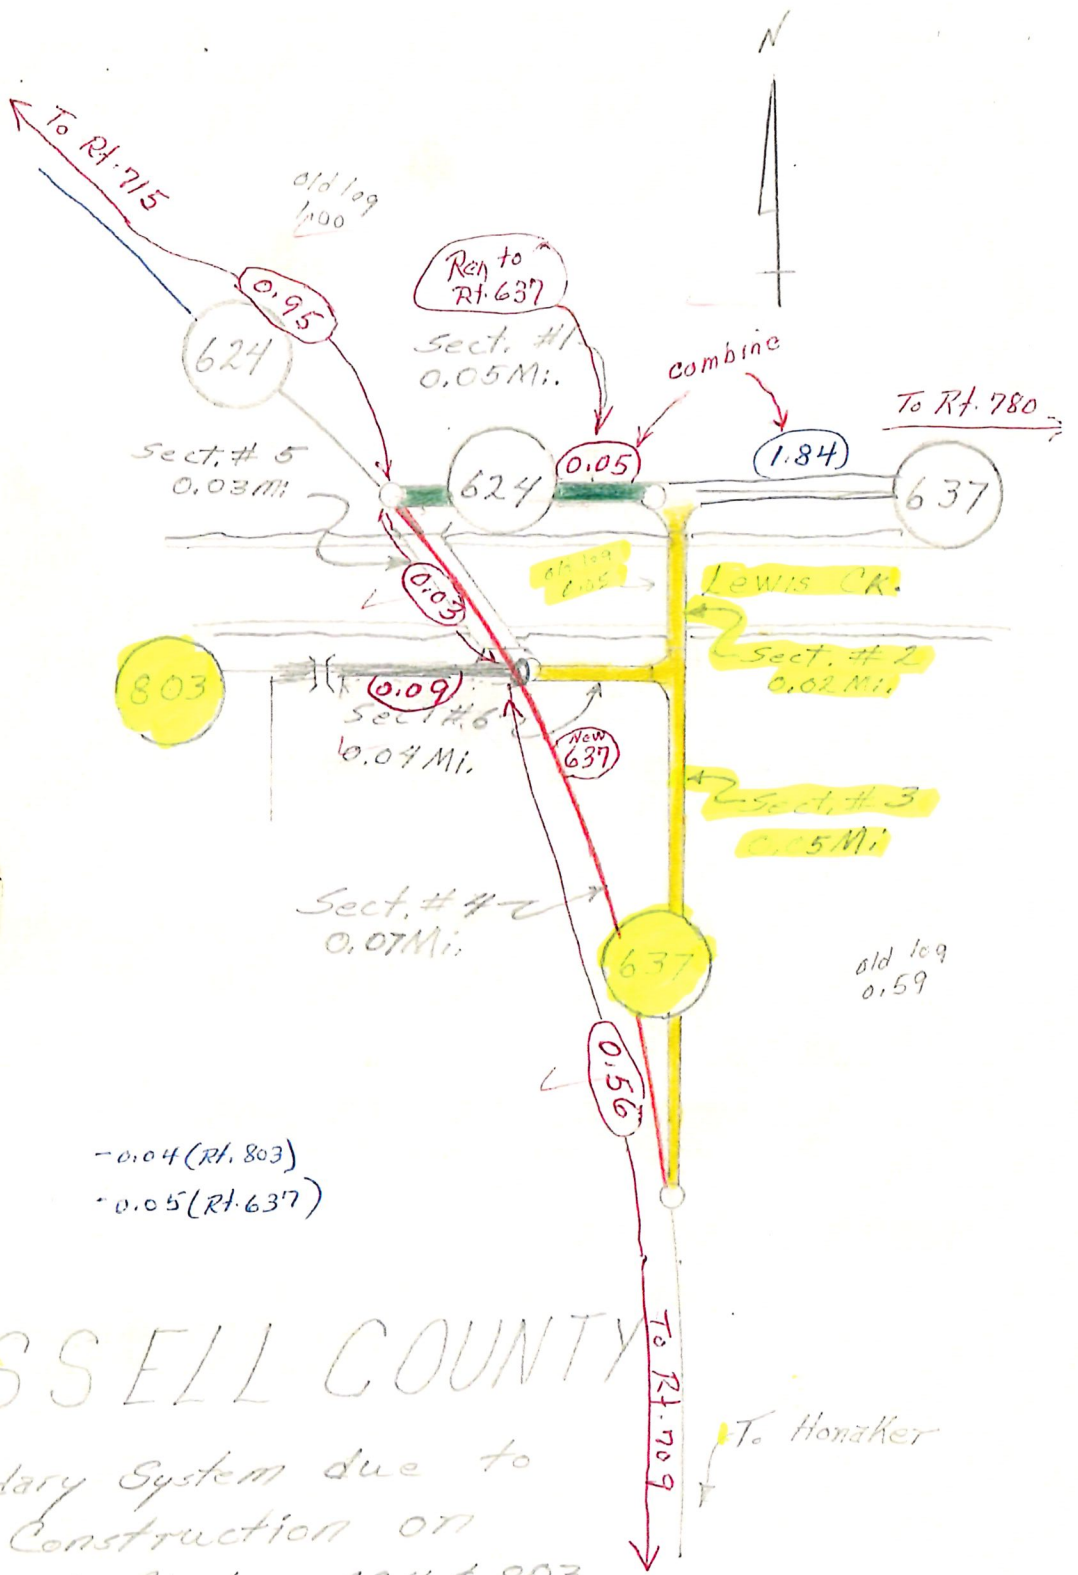 N
To Rt. 715
old log
1.00
0.95
624
Ren to
Rt. 637
Sect. #1
0.05 Mi.
combine
To Rt. 780
0.05
1.84
624
637
Sect. # 5
0.03 Mi
0.03
old log
1.05
Lewis CK.
Sect. # 2
0.02 Mi.
803
0.09
Sect. #6
0.04 Mi.
New
637
Sect. # 3
0.05 Mi
Sect. # 4
0.07 Mi.
637
old log
0.59
0.56
-0.04 (Rt. 803)
-0.05 (Rt. 637)
SSELL COUNTY
To Rt. 709
To Honaker
dary System due to
Construction on
803